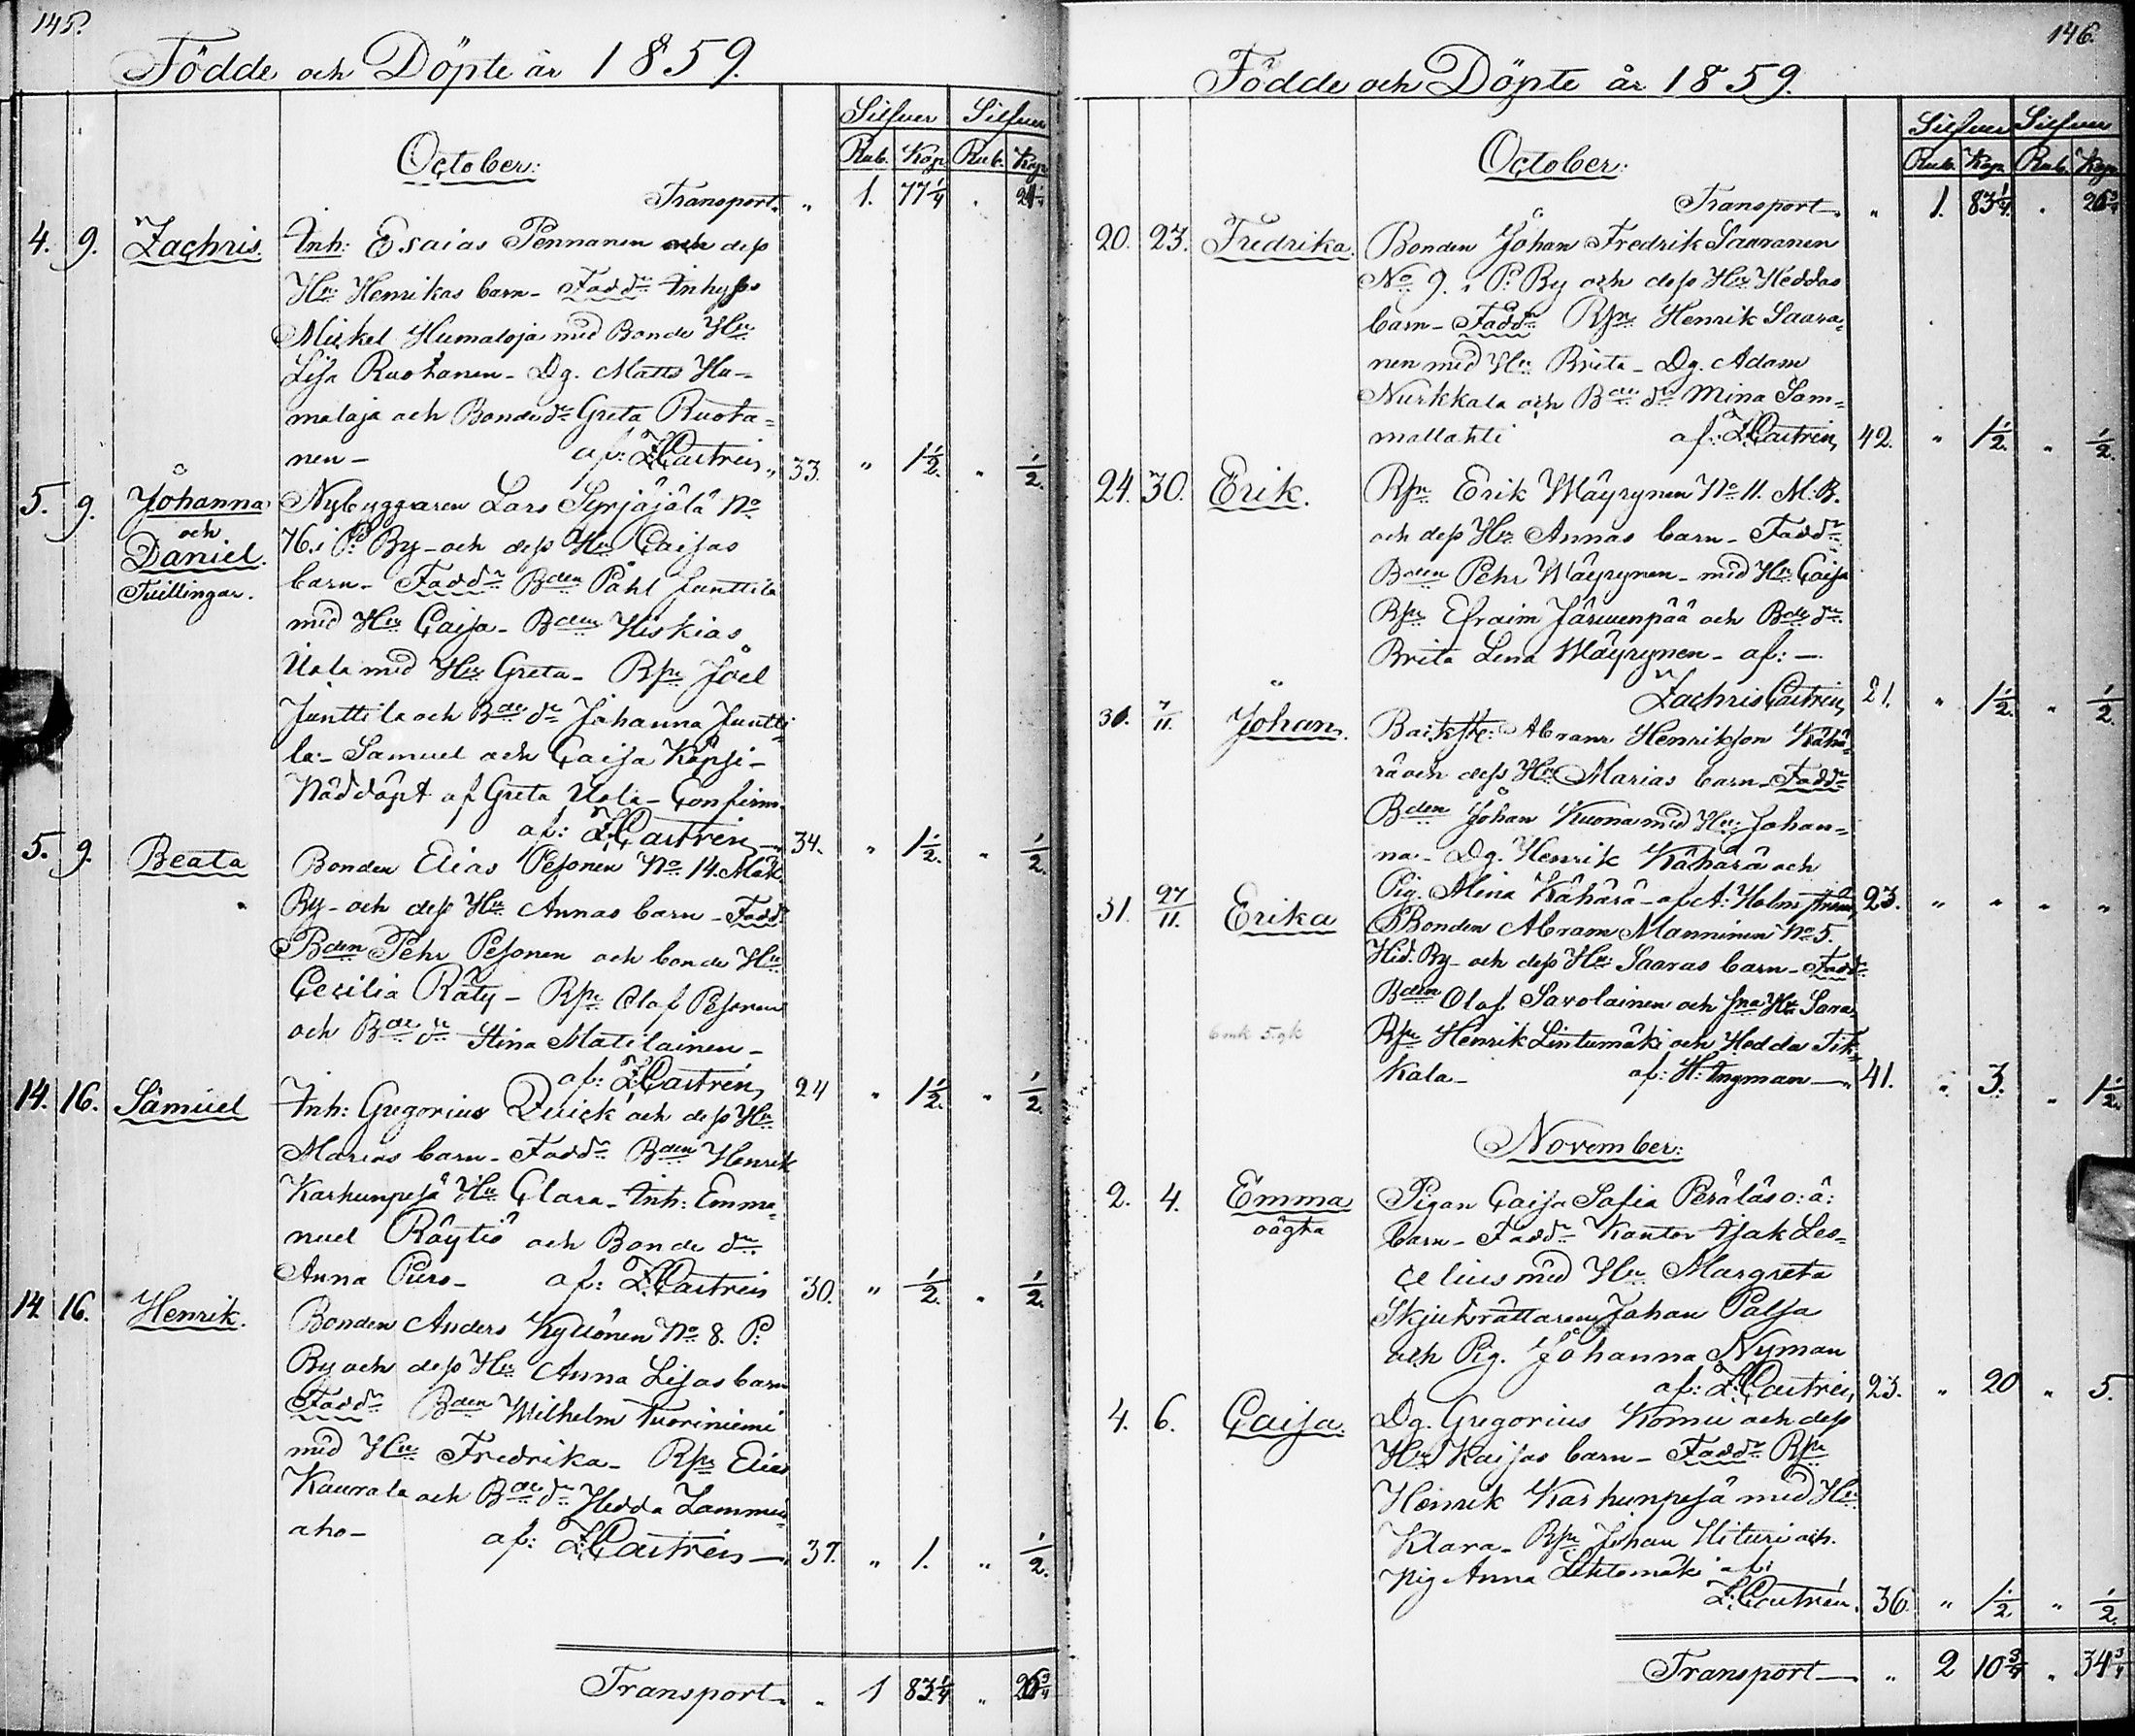 145.
Födde och Döpte år 1859.
Silfver Silfver
October: Rub. Kop. Rub. Kop.
Transport. " 1. 77 1/4 " 24 1/4
4. 9. Zachris. Inh: Esaias Pennanen och dess
Hu Henrikas barn - Faddr Inhyses
Mickel Humaloja med Bonde Hu
Lisa Ruotanen - Dg. Matts Hu-
maloja och Bonde dr Greta Ruota=
nen - af: Z. Castrén, 33. " 1 1/2. " 1/2.
5. 9. Johanna Nybyggaren Lars Syrjäjälä No
och
Daniel. 76. i P: By - och dess Hu Caisas
Tvillingar. barn - Faddr Bden Påhl Junttila
med Hu Caisa - Bden Hiskias
Uola med Hu Greta - Rsn Joel
Junttila och Bde dr Johanna Juntti=
la - Samuel och Caisa Käpsi -
Nöddöpt af Greta Uola - Confirm.
af: Z. Castrén - 34. " 1 1/2. " 1/2.
5. 9. Beata Bonden Elias Pesonen No 14. Mäk.
By - och dess Hu Annas barn - Fadd.
Bden Pehr Pesonen och bonde Hu
Cecilia Räty - Rsn Olof Pesonen
och Bde dr Stina Matilainen -
af: Z. Castrén, 24 " 1 1/2. " 1/2.
14. 16. Samuel Inh: Gregorius Quick och dess Hu
Marias barn - Faddr Bden Henrik
Karhunpesä Hu Clara - Inh: Emma=
nuel Röytiö och Bonde dr
Anna Puro - af: Z. Castrén 30. " 1/2. " 1/2.
14. 16. Henrik. Bonden Anders Kyllönen No 8. P:
By och dess Hu Anna Lisas barn
Faddr Bden Wilhelm Tuoriniemi
med Hu Fredrika - Rsn Elias
Kaurala och Bde dr Hedda Lammin=
aho - af: Z. Castrén - 37. " 1. " 1/2.
Transport. " 1 83 1/4 " 26 3/4
146.
Födde och Döpte år 1859.
Silfver Silfver
October: Rub. Kop. Rub. Kop.
Transport. " 1. 83 1/4. " 26 3/4
20. 23. Fredrika. Bonden Johan Fredrik Saaranen
No 9. i P: By och dess Hu Heddas
barn - Faddr Rsn Henrik Saara=
nen med Hu Brita - Dg. Adam
Nurkkala och Bde dr Mina Sam=
mallahti af: Z. Castrén, 42. " 1 1/2. " 1/2.
24. 30. Erik. Rsn Erik Mäyrynen No 11. M. B.
och dess Hu Annas barn - Faddr
Bden Pehr Mäyrynen - med Hu Caisa
Rsn Efraim Järwenpää och Bde dr
Brita Lena Mäyrynen - af: -
Zachris Castrén, 21. " 1 1/2. " 1/2.
30. 7/11. Johan. Backste: Abram Henriksson Kähä=
rä och dess Hu Marias barn - Faddr
Bden Johan Kuona med Hu Johan=
na - Dg. Henrik Kähärä och
Pig. Mina Kähärä - af A: Holmström, 23. " " " "
31. 27/11. Erika Bonden Abram Manninen No 5.
Hid. By - och dess Hu Saaras barn - Faddr
Bden Olof Savolainen och Hu Sara
6 mk 5. gk Rsn Henrik Lintumäki och Hedda Tik=
kala - af: H: Ingman - 41. " 3. " 1 1/2.
November:
2. 4. Emma Pigan Caisa Sofia Peräläs o: ä:
oägta barn - Faddr Kantor Isak Les=
celius med Hu Margreta
Skjuträttaren Johan Palsa
och Pig. Johanna Nyman
af: Z. Castrén, 23. " 20 " 5.
4. 6. Caisa. Dg. Gregorius Komu och dess
Hu Kaisas barn - Faddr Rsn
Henrik Karhunpesä med Hu
Klara - Rsn Johan Hituri och
Pig Anna Lehtomäki af:
Z. Castrén. 36. " 1 1/2 " 1/2.
Transport - " 2 10 3/4 " 34 3/4